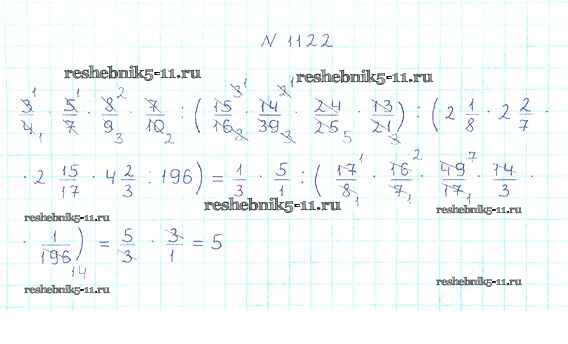 N 1122
reshebnik5-11.ru
reshebnik5-11.ru
3/4 · 5/7 · 8/9 · 7/10 : (15/16 · 14/39 · 24/25 · 13/21) : (2 1/8 · 2 2/7 ·
· 2 15/17 · 4 2/3 : 196) = 1/3 · 5/1 : (17/8 · 16/7 · 49/17 · 14/3 ·
reshebnik5-11.ru
reshebnik5-11.ru
reshebnik5-11.ru
· 1/196) = 5/3 · 3/1 = 5
14
reshebnik5-11.ru
reshebnik5-11.ru